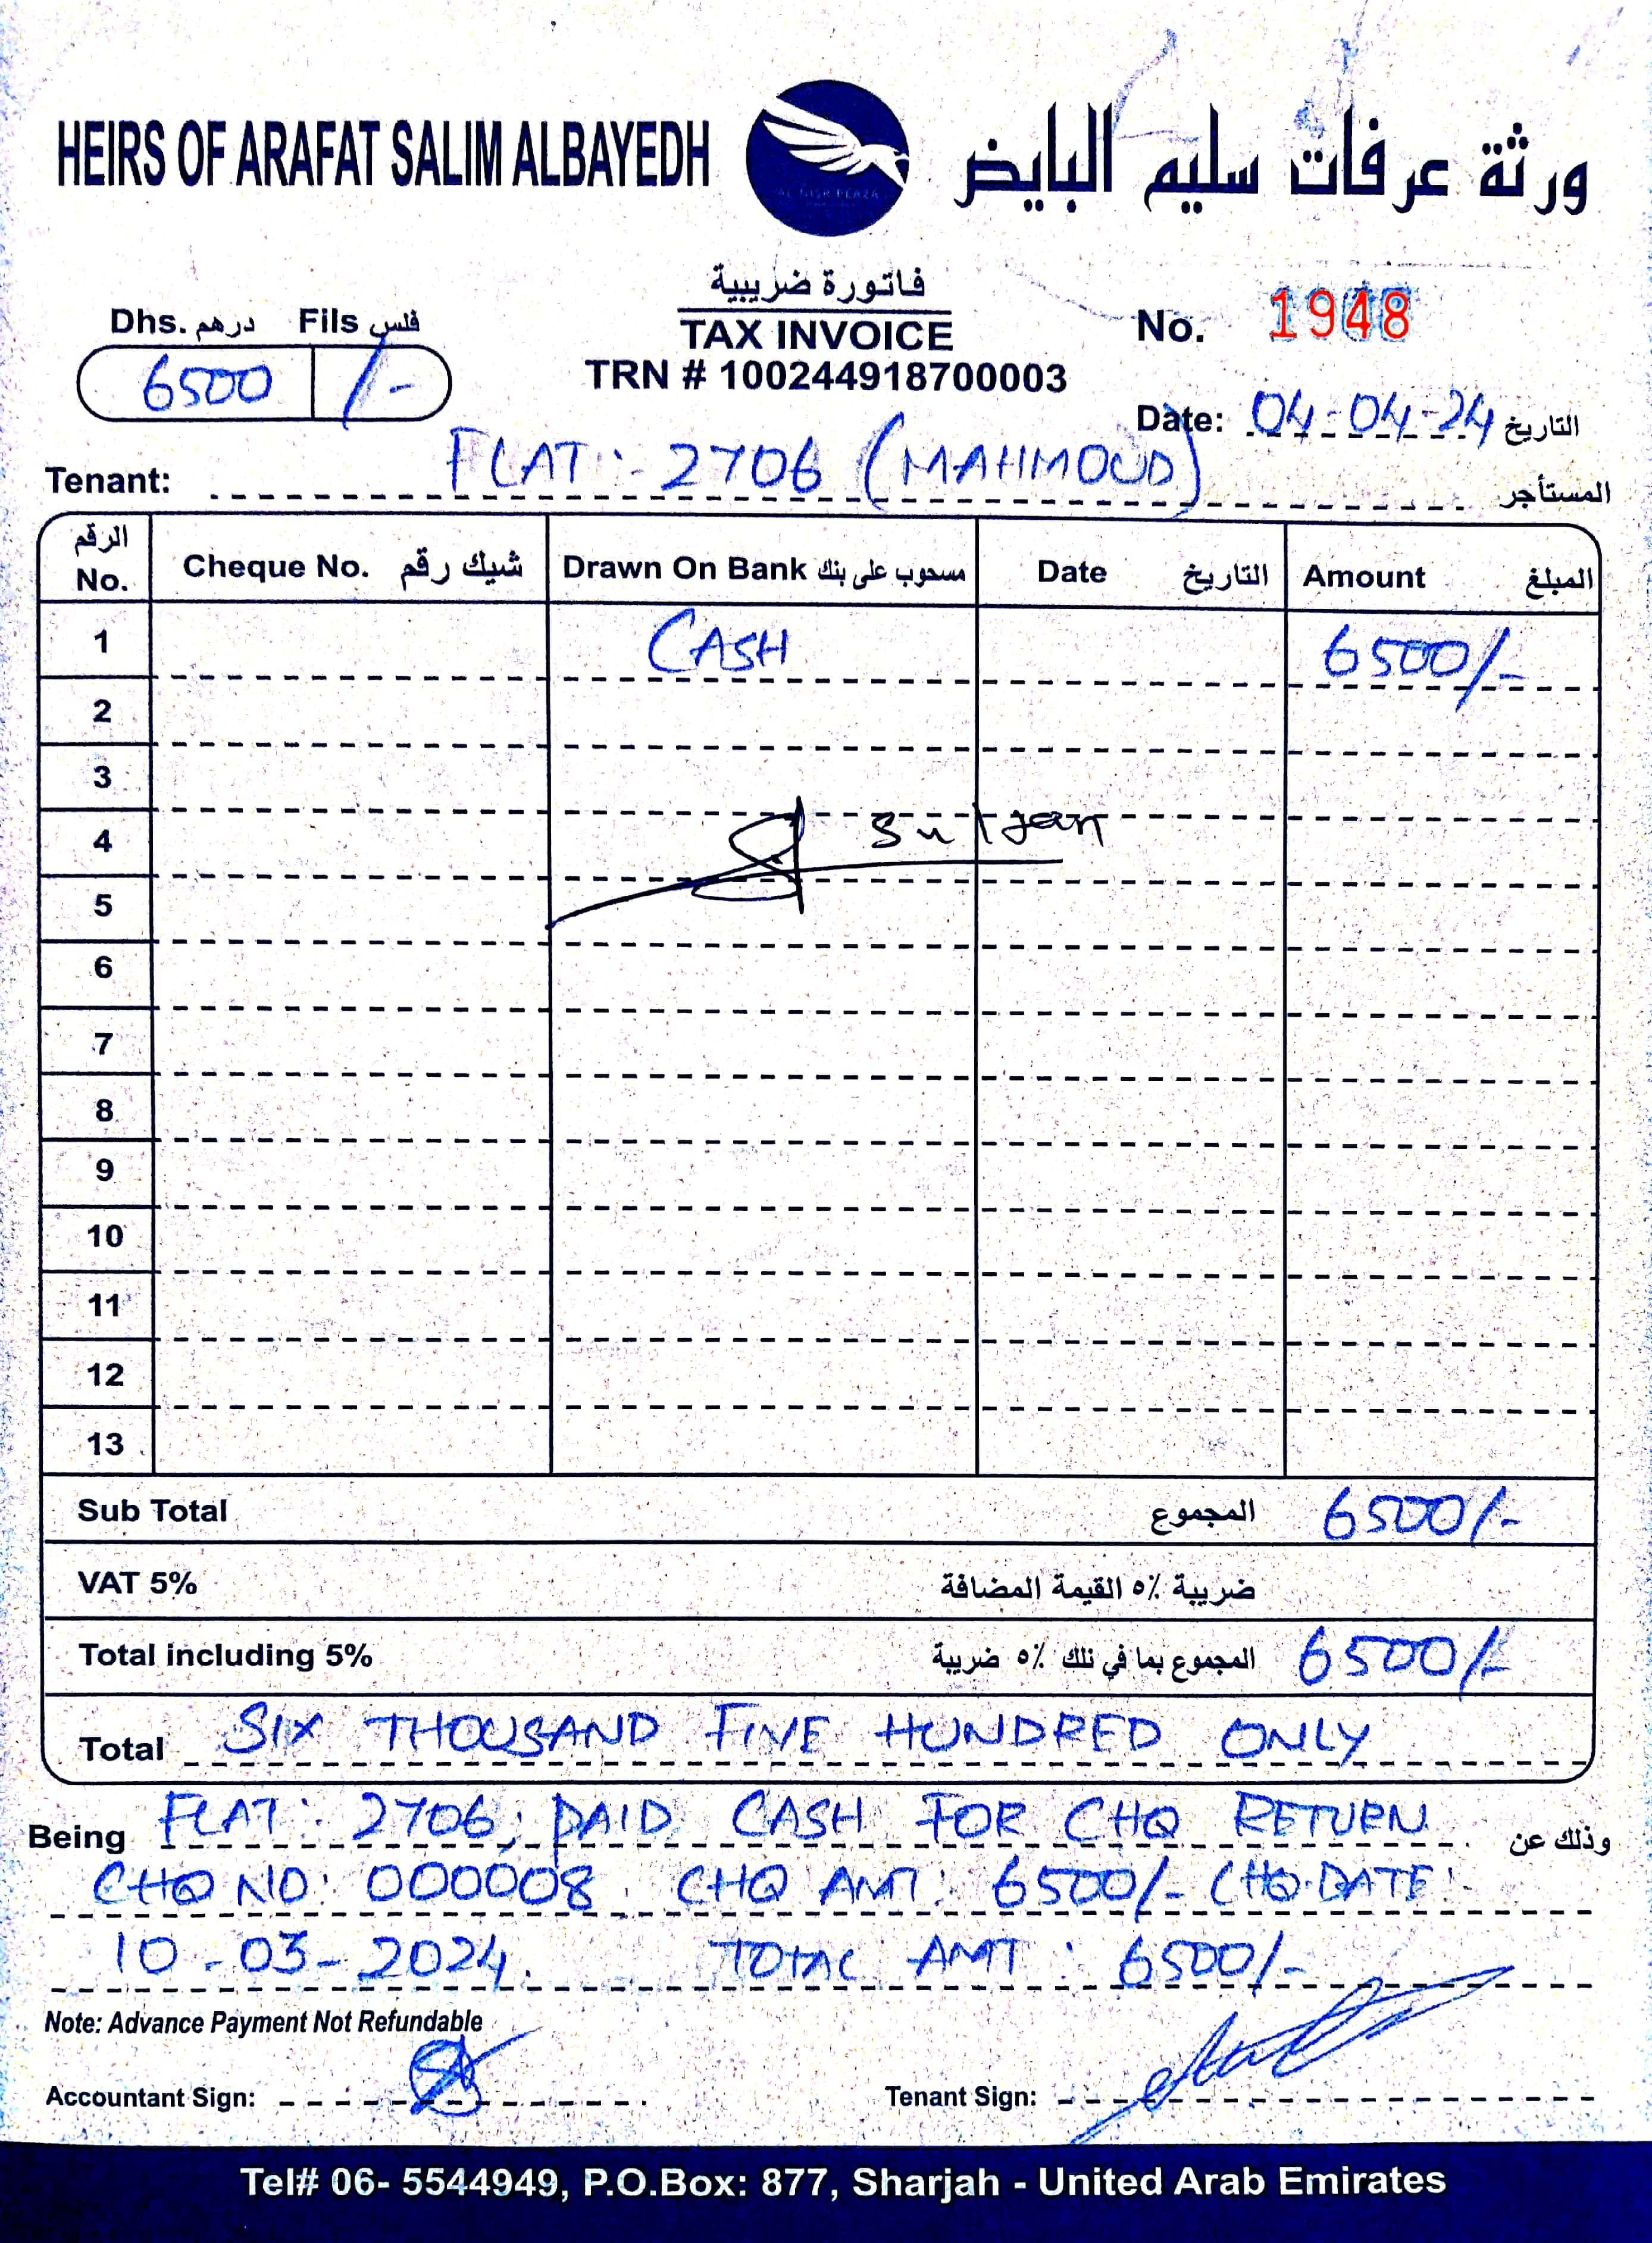 HEIRS OF ARAFAT SALIM ALBAYEDH
ورثة عرفات سليم البايض
AL NISR PLAZA
فاتورة ضريبية
TAX INVOICE
TRN # 100244918700003
Dhs. درهم Fils فلس
6500 /-
No. 1948
Date: 04-04-24 التاريخ
Tenant: FLAT :- 2706 (MAHMOUD) المستأجر
الرقم No. Cheque No. شيك رقم Drawn On Bank مسحوب على بنك Date التاريخ Amount المبلغ
1 CASH 6500/-
2
3
4 Sultan
5
6
7
8
9
10
11
12
13
Sub Total المجموع 6500/-
VAT 5% ضريبة ٥٪ القيمة المضافة
Total including 5% المجموع بما في تلك ٥٪ ضريبة 6500/-
Total SIX THOUSAND FIVE HUNDRED ONLY
Being FLAT: 2706, PAID CASH FOR CHQ RETURN وذلك عن
CHQ NO: 000008 CHQ AMT: 6500/- CHQ.DATE:-
10-03-2024. TOTAL AMT : 6500/-
Note: Advance Payment Not Refundable
Accountant Sign:
Tenant Sign:
Tel# 06- 5544949, P.O.Box: 877, Sharjah - United Arab Emirates